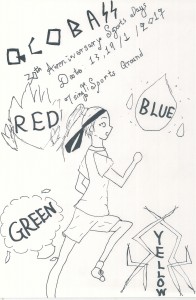 GLOBASS
Anniversary Sports Days
Date 17,19/1/2019
Sports Ground
RED
BLUE
GREEN
YELLOW